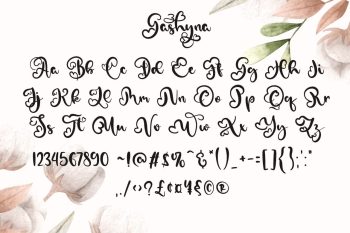 Gashyna
Aa Bb Cc Dd Ee Ff Gg Hh Ii
Jj Kk Ll Mm Nn Oo Pp Qq Rr
Ss Tt Uu Vv Ww Xx Yy Zz
1234567890 ~!@#$%^&*()_+-=[]{};:
,./‹›?£¢¤¥§©®